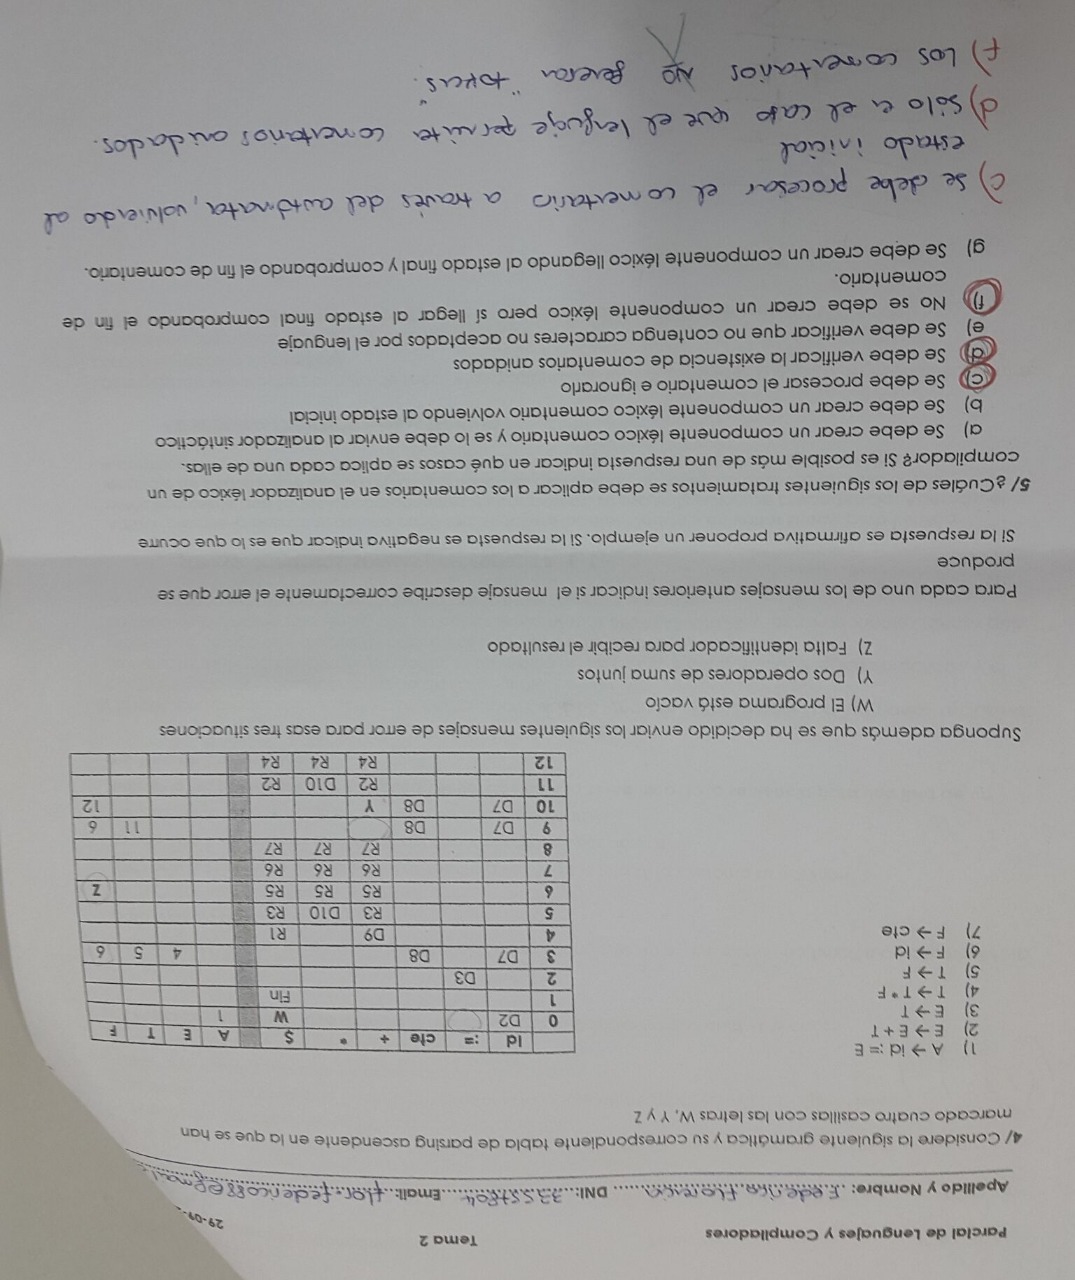 Parcial de Lenguajes y Compiladores Tema 2 29-09-
Apellido y Nombre: Federico Florencia DNI: Email:
4/ Considere la siguiente gramática y su correspondiente tabla de parsing ascendente en la que se han
marcado cuatro casillas con las letras W, Y y Z
1) A → id := E
2) E → E + T
3) E → T
4) T → T * F
5) T → F
6) F → Id
7) F → cte
Id := cte + * $ A E T F
0 D2 W 1
1 Fin
2 D3
3 D7 D8 4 5 6
4 D9 R1
5 R3 D10 R3
6 R5 R5 R5 Z
7 R6 R6 R6
8 R7 R7 R7
9 D7 D8 11 6
10 D7 D8 Y 12
11 R2 D10 R2
12 R4 R4 R4
Suponga además que se ha decidido enviar los siguientes mensajes de error para esas tres situaciones
W) El programa está vacío
Y) Dos operadores de suma juntos
Z) Falta identificador para recibir el resultado
Para cada uno de los mensajes anteriores indicar si el mensaje describe correctamente el error que se
produce
Si la respuesta es afirmativa proponer un ejemplo. Si la respuesta es negativa indicar que es lo que ocurre
5/ ¿Cuáles de los siguientes tratamientos se debe aplicar a los comentarios en el analizador léxico de un
compilador? Si es posible más de una respuesta indicar en qué casos se aplica cada una de ellas.
a) Se debe crear un componente léxico comentario y se lo debe enviar al analizador sintáctico
b) Se debe crear un componente léxico comentario volviendo al estado inicial
c) Se debe procesar el comentario e ignorarlo
d) Se debe verificar la existencia de comentarios anidados
e) Se debe verificar que no contenga caracteres no aceptados por el lenguaje
f) No se debe crear un componente léxico pero sí llegar al estado final comprobando el fin de
comentario.
g) Se debe crear un componente léxico llegando al estado final y comprobando el fin de comentario.
c) se debe procesar el comentario a través del autómata, volviendo al
estado inicial
d) sólo en el caso que el lenguaje permita comentarios anidados.
f) Los comentarios NO generan "tokens".